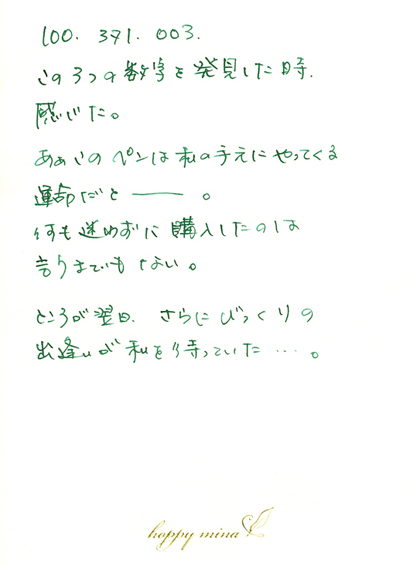 100. 371. 003.
この3つの数字を発見した時.
感じた。
あぁこのペンは私の手元にやってくる
運命だと――。
何も迷わずに購入したのは
言うまでもない。
ところが翌日. さらにびっくりの
出逢いが私を待っていた…。
happy mina